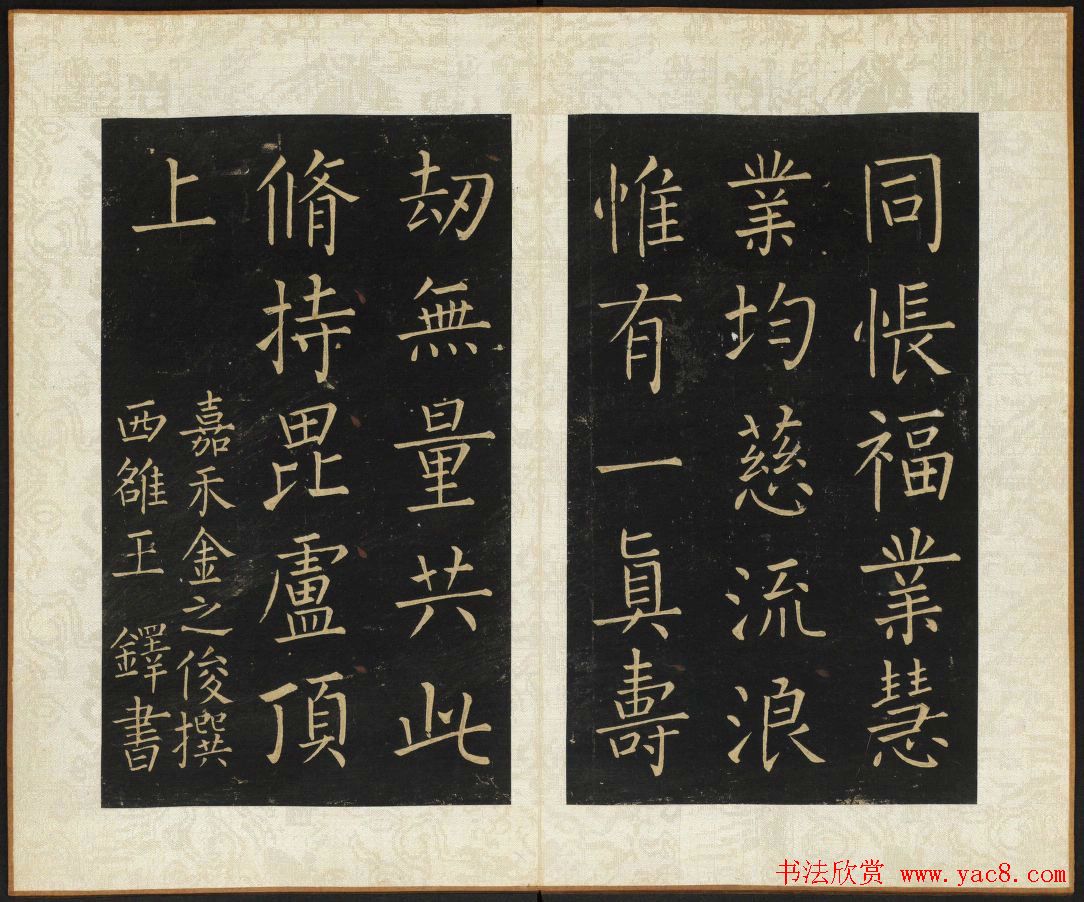 同悵福業慧
業均慈流浪
惟有一眞壽
劫無量共此
脩持毘盧頂
上
嘉禾金之俊撰
西雒王鐸書
书法欣赏 www.yac8.com